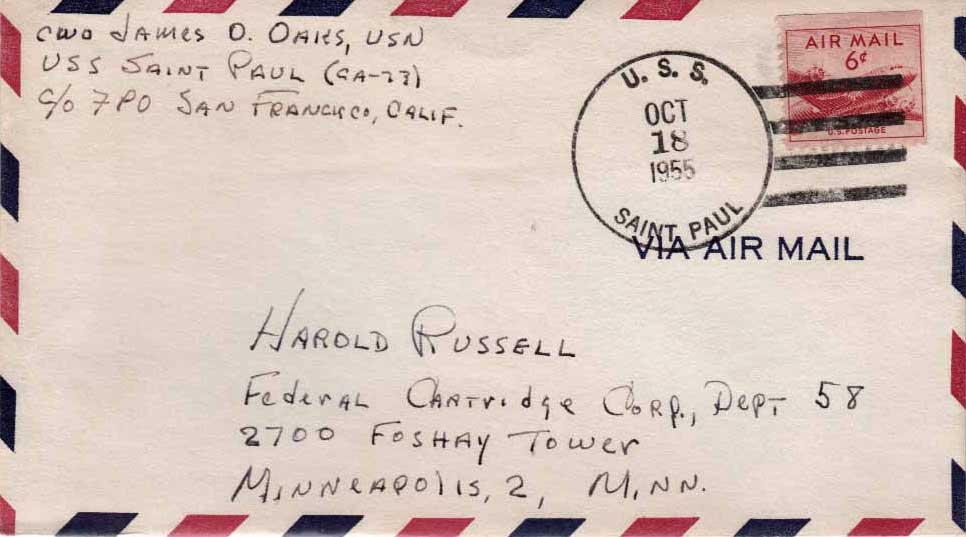 CWO James O. Oaks, USN
USS Saint Paul (CA-73)
c/o FPO San Francisco, Calif.
AIR MAIL
6¢
U.S. POSTAGE
U. S. S.
OCT
18
1955
SAINT PAUL
VIA AIR MAIL
Harold Russell
Federal Cartridge Corp., Dept 58
2700 Foshay Tower
Minneapolis, 2, Minn.